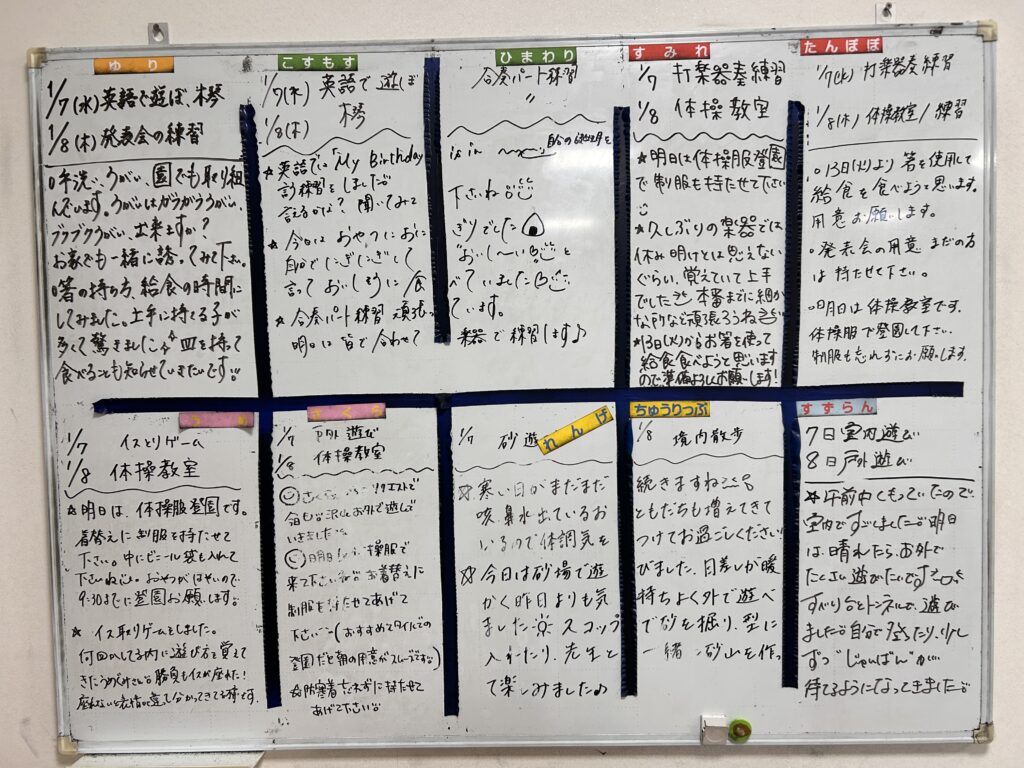 ゆり
1/7(水)英語で遊ぼ、木琴
1/8(木)発表会の練習
○手洗い、うがい、園でも取り組
んでいます。うがいはガラガラうがい、
ブクブクうがい、出来ますか?
お家でも一緒に話してみて下さい。
○箸の持ち方、給食の時間に
してみました。上手に持てる子が
多くて驚きました 皿を持って
食べることも知らせていきたいです
こすもす
1/7(水) 英語で遊ぼ
木琴
1/8(木)
★英語では「My Birthday
練習をしました
言えるかな? 聞いてみて
★今日は おやつにおに
自分でにぎにぎして
言って おいしそうに 食
★合奏パート練習 頑張っ
明日は 皆で 合わせて
ひまわり
合奏パート練習
〃
is in
自分の誕生月を
下さいね
ぎりでした
"おい〜しい" と
べていました
ています。
楽器で練習します♪
すみれ
1/7 打楽器奏練習
1/8 体操教室
★明日は体操服登園
で制服も持たせて下さい
★久しぶりの楽器では
休み明けとは思えない
ぐらい、覚えていて上手
でした 本番までに細か
な所など頑張ろうね
★13日(火)からお箸を使って
給食食べようと思います
ので準備よろしくお願いします!
たんぽぽ
1/7(水) 打楽器奏 練習
1/8(木) 体操教室/練習
○13日(火)より 箸を使用して
給食を食べようと思います。
用意お願いします。
○発表会の用意 まだの方
は 持たせて下さい。
○明日は体操教室です。
体操服で登園して下さい。
制服も忘れずにお願いします。
うめ
1/7 イスとりゲーム
1/8 体操教室
★明日は、体操服登園です。
着替えに制服を持たせて
下さい。中にビニール袋も入れて
下さいね。おやつがはやいので
9:30までに登園お願いします。
★イス取りゲームをしました。
何回かしてる内に遊び方を覚えて
きたうめぐみさん 勝負もイスが座れた!
さくら
1/7 戸外遊び
1/8 体操教室
リクエストで
今日も沢山お外で遊んで
いきました
明日は 体操服で
来て下さい お着替えに
制服を持たせてあげて
下さい (おすすめスタイルでの
登園だと朝の用意がスムーズです)
★防寒着忘れずに持たせて
あげて下さい
れんげ
1/7 砂遊
☆寒い日がまだまだ
咳、鼻水出ているお
いるので体調気を
☆今日は砂場で遊
かく昨日よりも気
ました スコップ
入れたり、先生と
て楽しみました♪
ちゅうりっぷ
1/8 境内散歩
続きますね
ともだちも増えてきて
つけてお過ごしください
びました、日差しが暖
持ちよく外で遊べ
で砂を掘り、型に
一緒に砂山を作っ
すずらん
7日 室内遊び
8日 戸外遊び
★午前中くもっていたので
室内ですごしました 明日
は晴れたら、お外で
たくさん遊びたいです
すべり台とトンネルで、遊び
ました 自分で登ったり、少し
ずつ"じゅんばん"が
待てるようになってきました